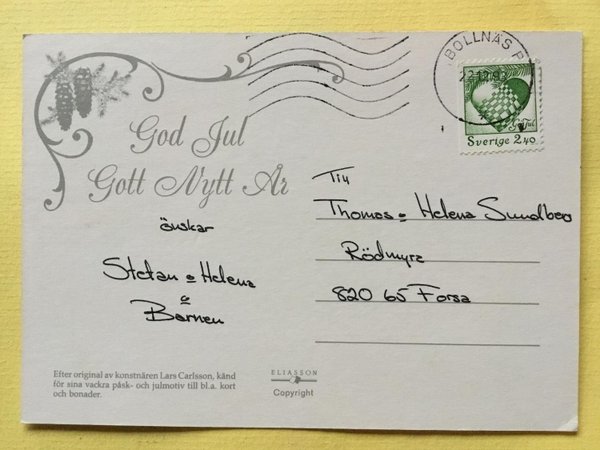 BOLLNÄS
God Jul
Sverige 2,40
God Jul
Gott Nytt År
önskar
Stefan o Helena
o
Barnen
Till
Thomas o Helena Sundberg
Rödmyra
820 65 Forsa
Efter original av konstnären Lars Carlsson, känd
för sina vackra påsk- och julmotiv till bl.a. kort
och bonader.
ELIASSON
Copyright